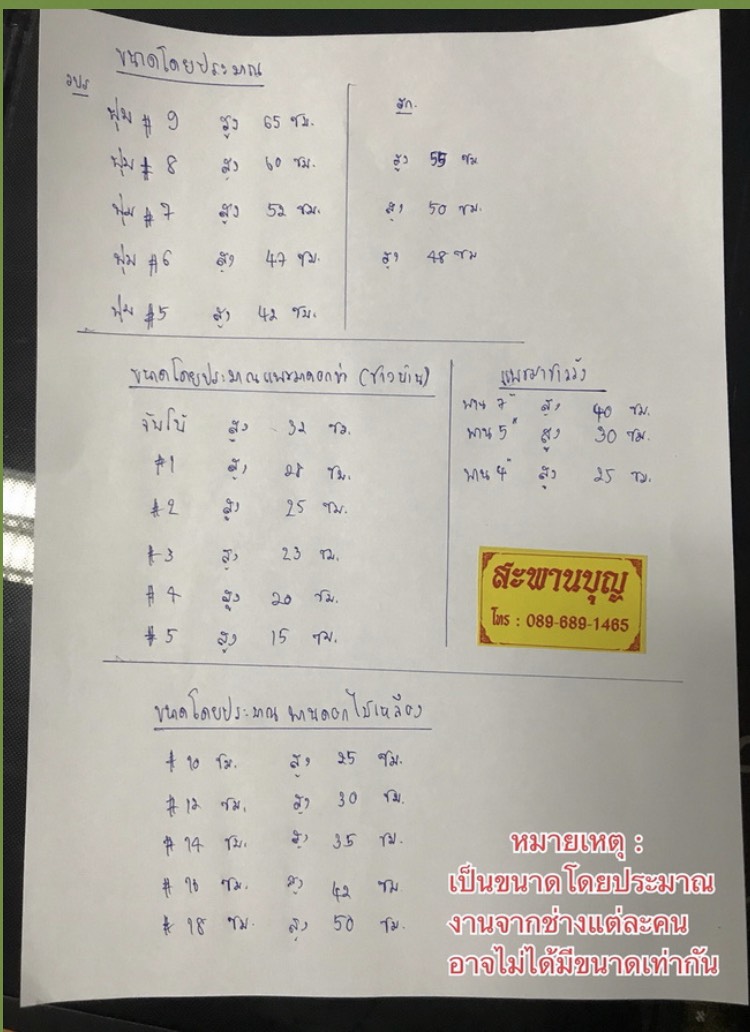 ขนาดโดยประมาณ
จปร
สก.
พุ่ม # 9 สูง 65 ซม.
พุ่ม # 8 สูง 60 ซม. สูง 55 ซม
พุ่ม # 7 สูง 52 ซม. สูง 50 ซม.
พุ่ม #6 สูง 47 ซม. สูง 48 ซม
พุ่ม #5 สูง 42 ซม.
ขนาดโดยประมาณแพรวาดอกข่า (ชาวบ้าน)
จัมโบ้ สูง 32 ซม.
#1 สูง 28 ซม.
#2 สูง 25 ซม.
#3 สูง 23 ซม.
#4 สูง 20 ซม.
#5 สูง 15 ซม.
ชาววัง
พาน 7" สูง 40 ซม.
พาน 5" สูง 30 ซม.
พาน 4" สูง 25 ซม.
สะพานบุญ
โทร : 089-689-1465
ขนาดโดยประมาณ พานดอกไม้เหลือง
# 10 ซม. สูง 25 ซม.
# 12 ซม. สูง 30 ซม.
# 14 ซม. สูง 35 ซม.
# 16 ซม. สูง 42 ซม.
# 18 ซม. สูง 50 ซม.
หมายเหตุ :
เป็นขนาดโดยประมาณ
งานจากช่างแต่ละคน
อาจไม่ได้มีขนาดเท่ากัน